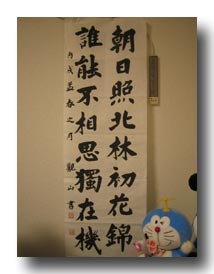 朝日照北林初花錦
誰能不相思獨在機
丙戌孟春之月 觀山書